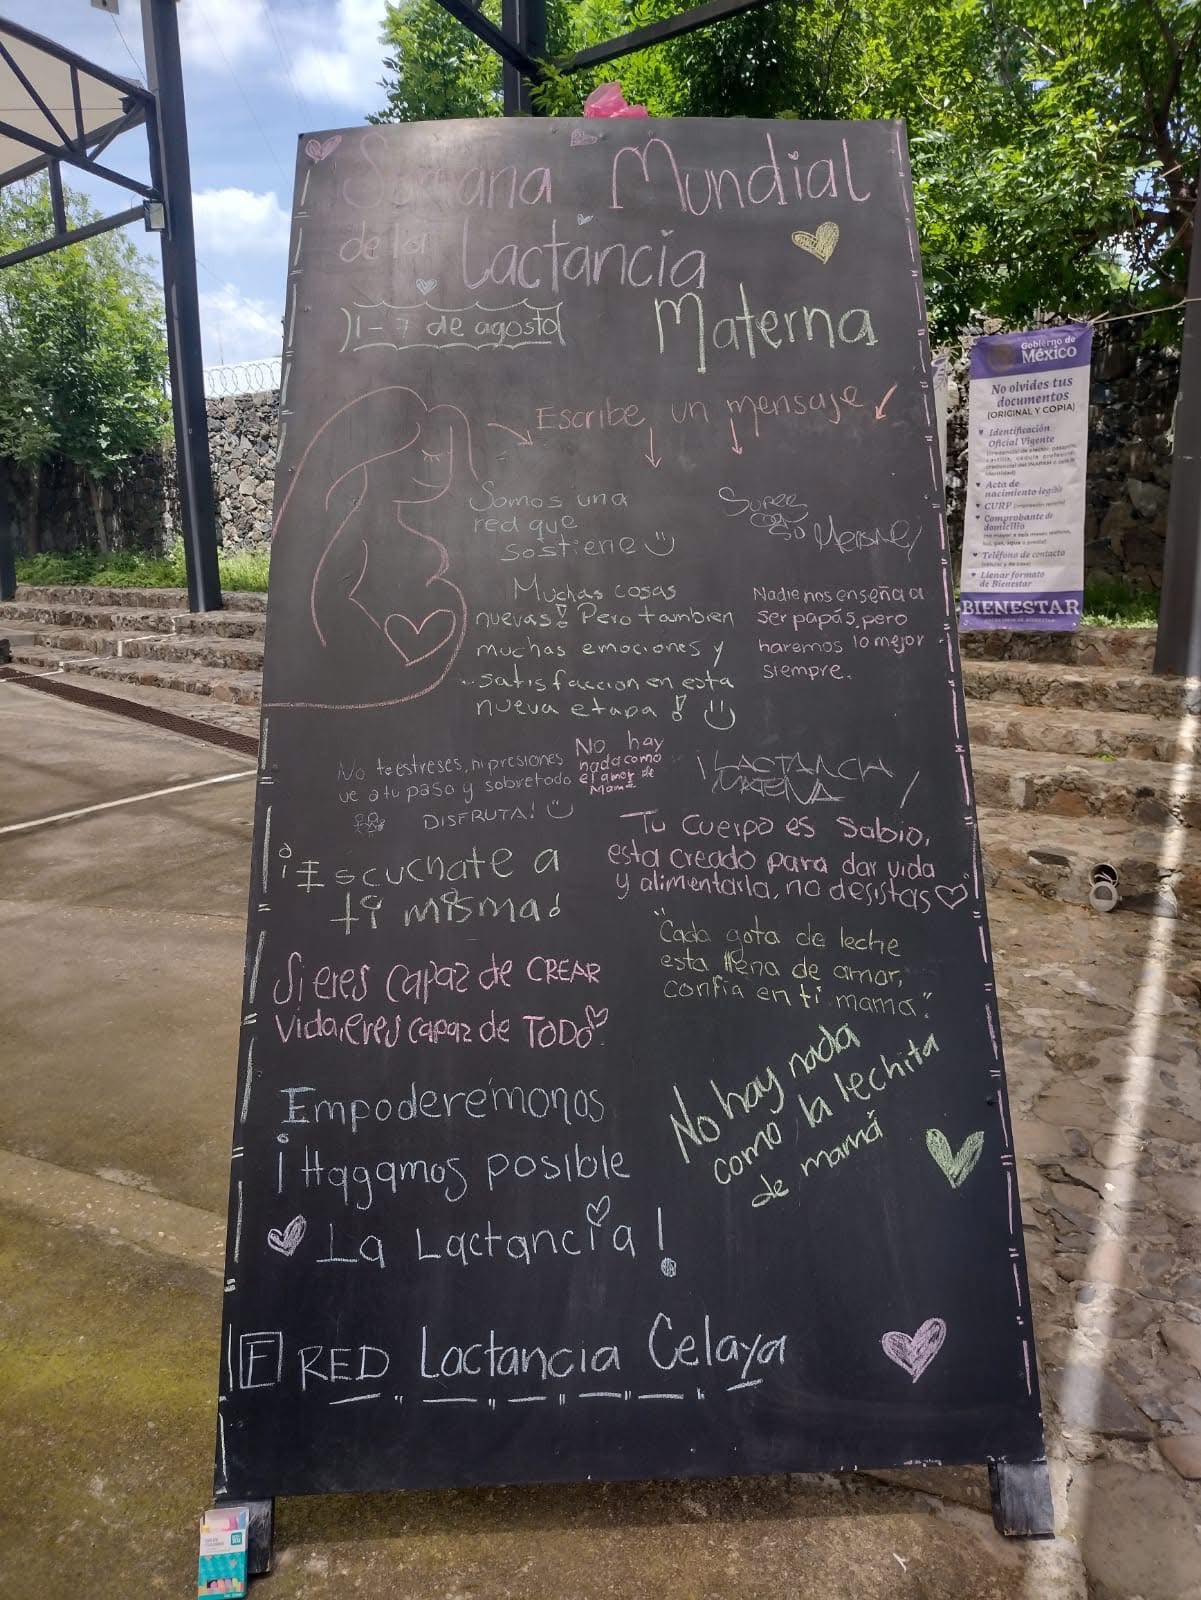 Semana Mundial
de la Lactancia
Materna
1-7 de agosto
Escribe un mensaje
Somos una
red que
sostiene
Super
Muchas cosas
nuevas! Pero tambien
muchas emociones y
satisfaccion en esta
nueva etapa!
Nadie nos enseña a
ser papás, pero
haremos lo mejor
siempre.
No te estreses, ni presiones
ve a tu paso y sobretodo
DISFRUTA!
No hay
nada como
el amor de
Mamá
LACTANCIA
¡Escuchate a
ti misma!
Tu cuerpo es sabio,
esta creado para dar vida
y alimentarla, no desistas
Si eres capaz de CREAR
vida, eres capaz de TODO
"Cada gota de leche
esta llena de amor,
confia en ti mama."
Empoderémonos
¡Hagamos posible
La Lactancia!
No hay nada
como la lechita
de mamá
F RED Lactancia Celaya
Gobierno de
México
No olvides tus
documentos
(ORIGINAL Y COPIA)
Identificación
Oficial Vigente
Acta de
nacimiento legible
CURP
Comprobante de
domicilio
Teléfono de contacto
Llenar formato
de Bienestar
BIENESTAR